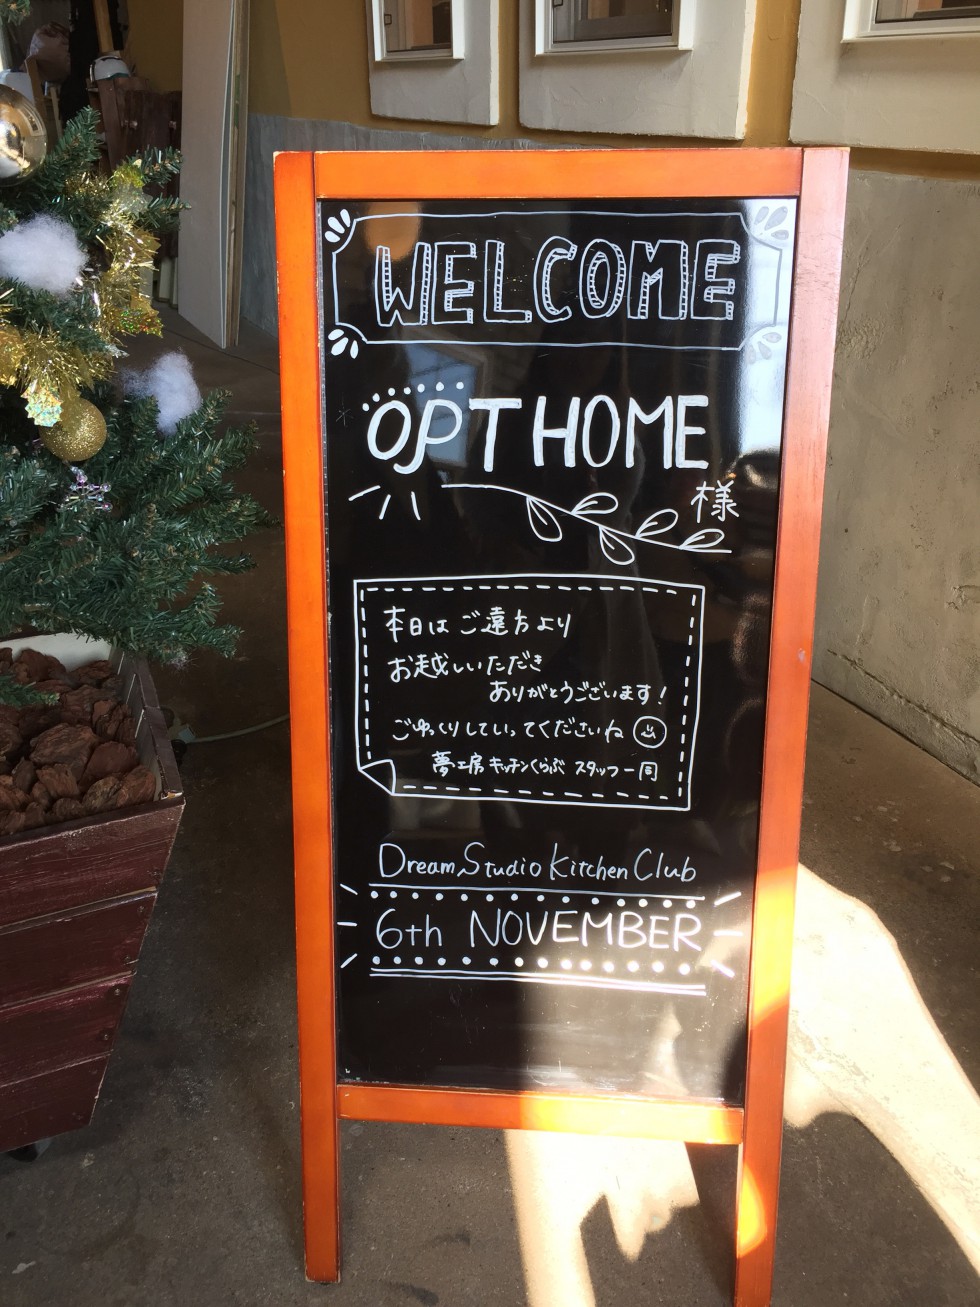 WELCOME
OPT HOME
様
本日は ご遠方より
お越しいただき
ありがとうございます!
ごゆっくりしていってくださいね
夢工房 キッチンくらぶ スタッフ一同
Dream Studio Kitchen Club
6th NOVEMBER